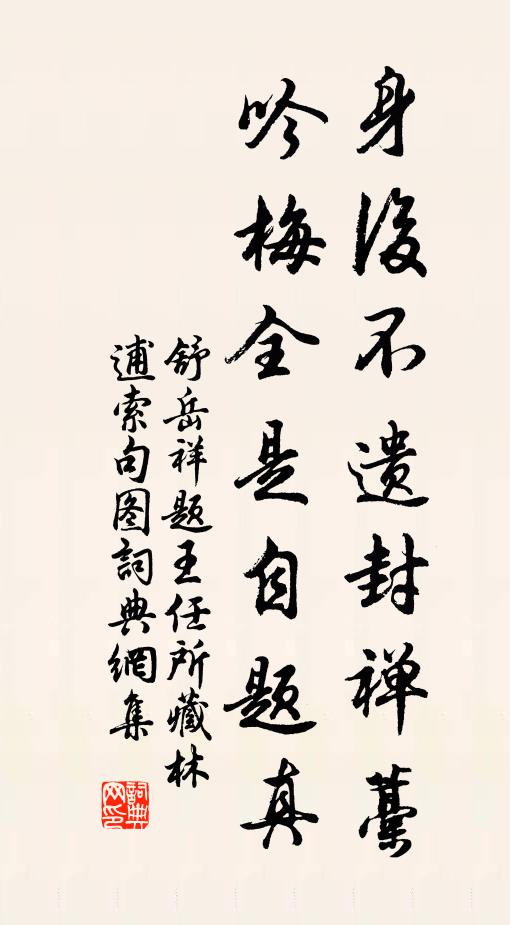 身後不遺封禅藁
吟梅全是自题真
舒岳祥题王任所藏林
逋索句图詞典網集
詞典网印